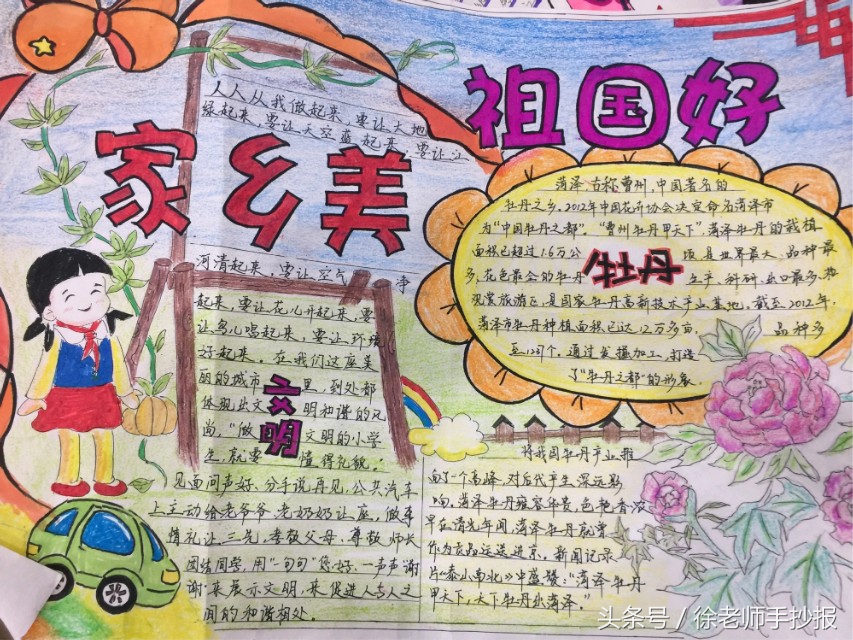 家乡美
祖国好
人人从我做起来,要让大地
绿起来,要让天空蓝起来,要让江
河清起来,要让空气净
起来,要让花儿开起来,要
让鸟儿唱起来,要让环境
好起来。在我们这座美
丽的城市里,到处都
体现出文明和谐的风
尚,“做文明的小学
生,就要懂得礼貌。
文明
见面问声好,分手说再见,公共汽车
上主动给老爷爷老奶奶让座,做事
情礼让三先,孝敬父母,尊敬师长
团结同学,用一句句“您好,一声声谢
谢”来展示文明,来促进人与人之
间的和谐相处。
菏泽,古称曹州,中国著名的
牡丹之乡。2012年中国花卉协会决定命名菏泽市
为“中国牡丹之都”,“曹州牡丹甲天下”,菏泽牡丹的栽植
面积已超过1.6万公顷是世界最大、品种最
多、花色最全的牡丹生产、科研、出口最多、
观赏旅游区,是国家牡丹高新技术产业基地,截至2012年,
菏泽市牡丹种植面积已达12万多亩,品种多
通过发掘加工,打造
了“牡丹之都”的形象。
牡丹
将我国牡丹产业推
向了个高峰,对后代产生深远影
响,菏泽牡丹雍容华贵,色艳香浓
早在清光年间,菏泽牡丹就曾
作为贡品运送进京,新闻记录
片《泰山南北》中盛赞:“菏泽牡丹
甲天下,天下牡丹出菏泽。”
头条号 / 徐老师手抄报